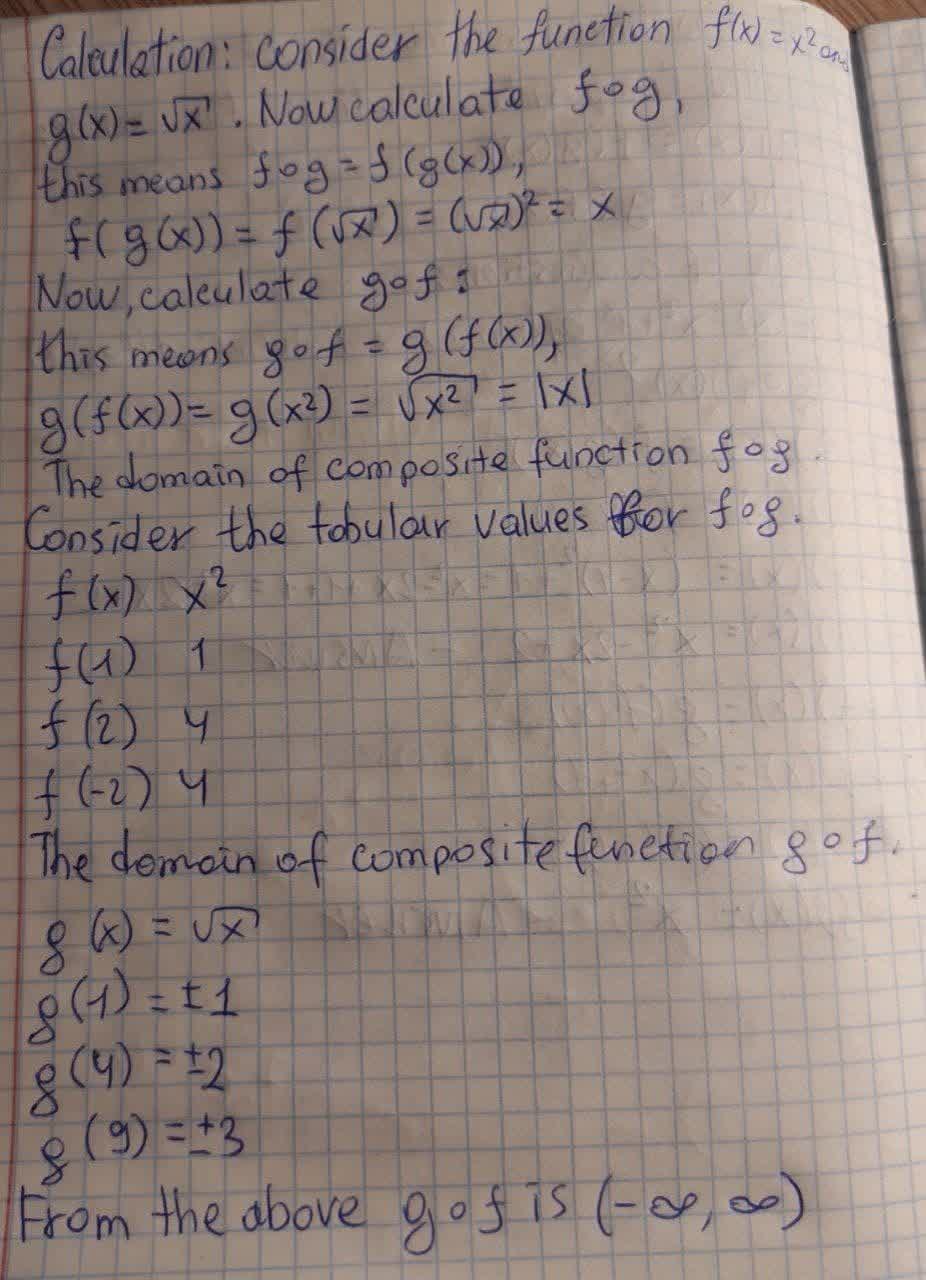 Calculation: consider the function f(x) = x² and
g(x) = √x . Now calculate fog,
this means fog = f(g(x)),
f(g(x)) = f(√x) = (√x)² = x
Now, calculate gof :
this means gof = g(f(x)),
g(f(x)) = g(x²) = √x² = |x|
The domain of composite function fog.
Consider the tabular values for fog.
f(x) x²
f(1) 1
f(2) 4
f(-2) 4
The domain of composite function gof.
g(x) = √x
g(1) = ±1
g(4) = ±2
g(9) = ±3
From the above gof is (-∞, ∞)